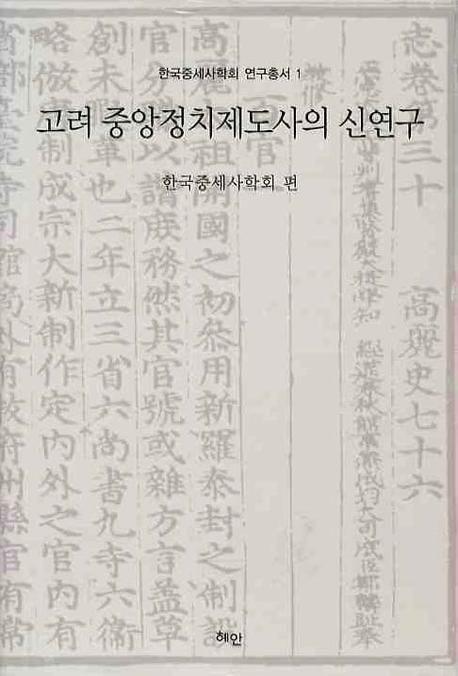 한국중세사학회 연구총서 1
고려 중앙정치제도사의 신연구
한국중세사학회 편
志卷第三十 高麗史七十六
集賢殿大提學知 經筵春秋館 大司成臣鄭麟趾奉
敎修
百官
高麗太祖開國之初參用新羅泰封之制設
官分職以諧庶務然其官號或雜方言盖草
創未革也二年立三省六尚書九寺六衛
略倣唐制成宗大新制作定內外之官內有
省部臺院寺司館局外有牧府州縣官有常
혜안